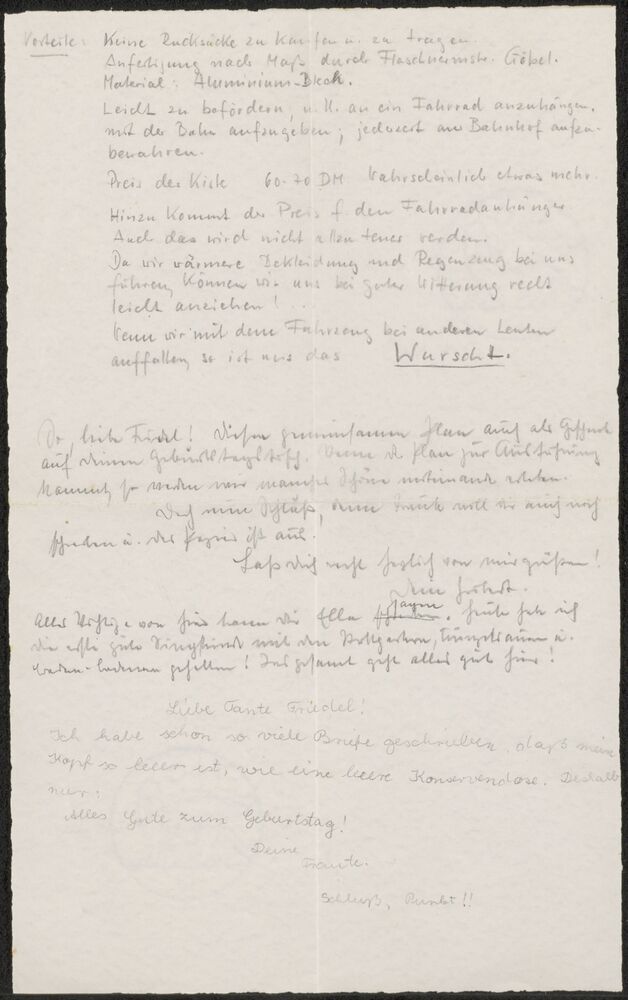 Vorteile: Keine Rucksäcke zu kaufen u. zu tragen.
Anfertigung nach Maß durch Flaschnermstr. Göbel.
Material: Aluminium-Blech.
Leicht zu befördern, u. U. an ein Fahrrad anzuhängen,
mit der Bahn aufzugeben; jederzeit am Bahnhof aufzu-
bewahren.
Preis der Kiste 60-70 DM Wahrscheinlich etwas mehr.
Hinzu kommt der Preis f. den Fahrradanhänger
Auch das wird nicht allzu teuer werden.
Da wir wärmere Bekleidung und Regenzeug bei uns
führen, können wir uns bei guter Witterung recht
leicht anziehen! . .
Wenn wir mit dem Fahrzeug bei anderen Leuten
auffallen, so ist uns das Wurscht.
So, liebe Friedel! Diesen gemeinsamen Plan auch als
auf Deinen Geburtstagstisch. Wenn der Plan zur Ausführung
kommt, so werden wir manches Schöne miteinander erleben.
Doch nun Schluß, denn Traute will Dir auch noch
schreiben u. das Papier ist aus.
Laß Dich recht herzlich von mir grüßen!
Dein
Alles Wichtige von hier kann Dir Ella sagen. Heute hab ich
die erste gute Singstunde mit den
gehalten! Insgesamt geht alles gut hier!
Liebe Tante Friedel!
Ich habe schon so viele Briefe geschrieben, daß mein
Kopf so leer ist, wie eine leere Konservendose. Deshalb
nur:
Alles Gute zum Geburtstag!
Deine
Traute.
Schluß, Punkt!!